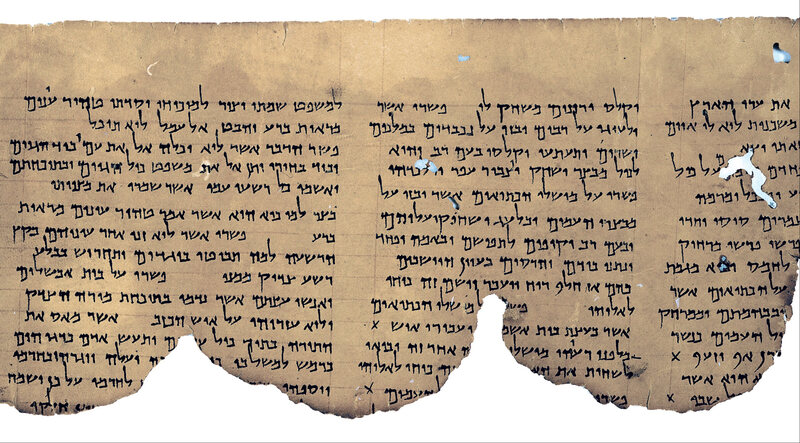 את ערי הארץ
משכנות לוא לו איום
שאתו יצא
על כול
ומרמה
סוסו וחדו
פרשו פרשו מרחוק
לחמס יבוא מגמת
על הכתיאים אשר
ובבהמתם וממרחק
כול העמים כנשר
אף וזעף
הוא אשר
וקלס ורזנים משחק לו פשרו אשר
ילעיגו על רבים ובזו על נכבדים במלכים
ושרים יתעתעו וקלסו בעם רב והוא
לכול מבצר ישחק ויצבור עפר וילכדהו
פשרו על מושלי הכתיאים אשר יבזו על
מבצרי העמים ובלעג ישחוקו עליהם
ובעם רב יקיפום לתפושם ובאמה ופחד
ינתנו בידם והרסום בעוון היושבים
בהם אז חלף רוח ויעבר וישם זה כוחו
לאלוהו מושלי הכתיאים
אשר בעצת בית יעבורו איש
מלפני רעיהו אחר זה יבואו
לשחית את כוחו לאלוהו
העמים
למשפט שמתו וצור למוכיחו יסדתו טהור עינים
מראות ברע והבט אל עמל לוא תוכל
פשר הדבר אשר לוא יכלה אל את עמו ביד הגוים
וביד בחירו יתן אל את משפט כול הגוים ובתוכחתם
יאשמו כל רשעי עמו אשר שמרו את מצוותו
בצר למו כיא הוא אשר אמר טהור עינים מראות
ברע פשרו אשר לוא זנו אחר עיניהם בקץ
הרשעה למה תביטו בוגדים ותחריש בבלע
רשע צדיק ממנו פשרו על בית אבשלום
ואנשי עצתם אשר נדמו בתוכחת מורה הצדק
ולוא עזרוהו על איש הכזב אשר מאס את
התורה בתוך כול ותעש אדם כדגי הים
כרמש למשל בו יעלה ויגרהו בחרמו
לחרמו על כן ישמח